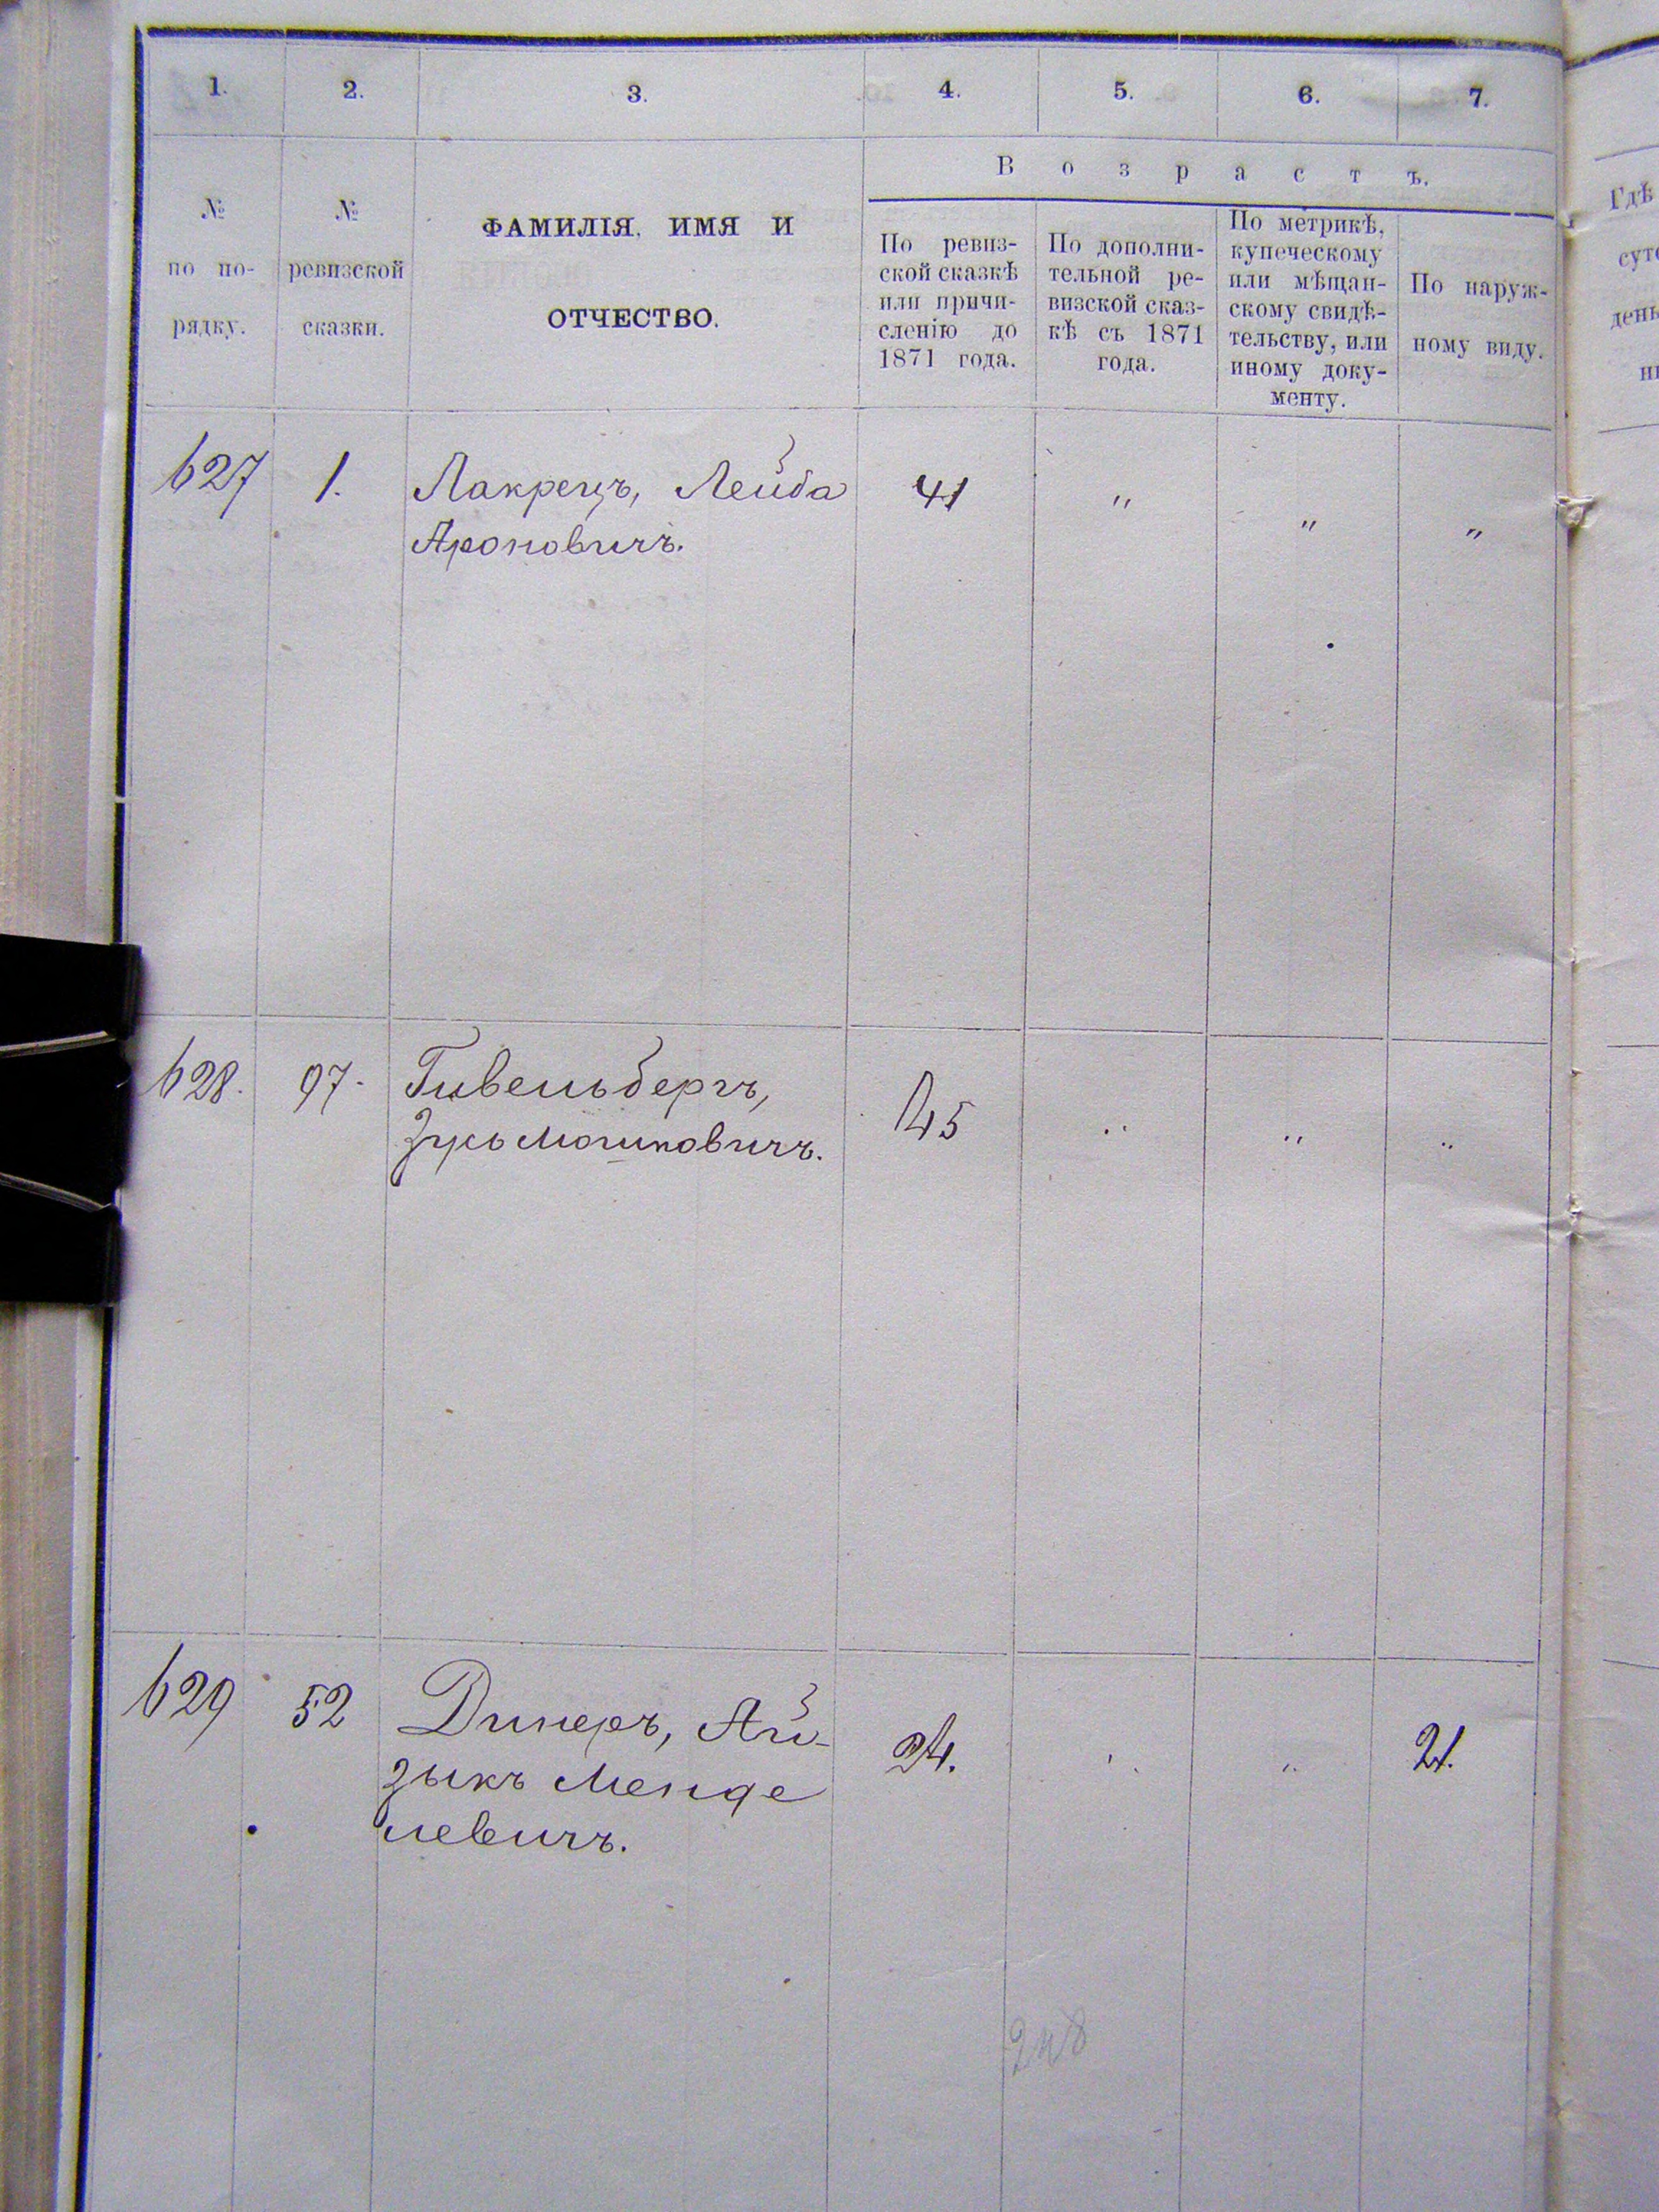 1. 2. 3. 4. 5. 6. 7.
№
по по-
рядку.
№
ревизской
сказки.
ФАМИЛІЯ, ИМЯ И
ОТЧЕСТВО.
Возрастъ.
По ревиз-
ской сказкѣ
или причи-
сленію до
1871 года.
По дополни-
тельной ре-
визской сказ-
кѣ съ 1871
года.
По метрикѣ,
купеческому
или мѣщан-
скому свидѣ-
тельству, или
иному доку-
менту.
По наруж-
ному виду.
Гдѣ
627 1. Лакрецъ, Лейба 41 " " "
Ароновичъ.
628. 97. Гивельбергъ, 45 " " "
Мошковичъ.
629 52 Динеръ, Ай- 24. " " 21.
зыкъ Менде
левичъ.
248